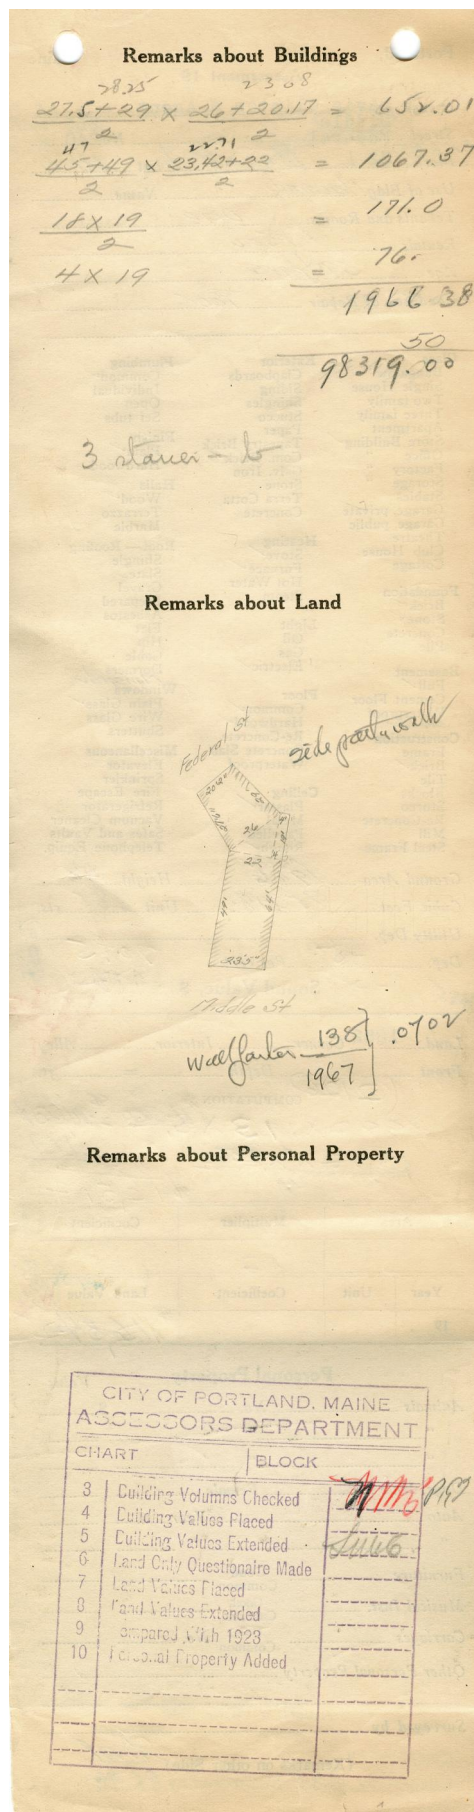 Remarks about Buildings
28.25 23.08
27.5+29 x 26+20.17 = 652.01
2 2
47 22.71
45+49 x 23.42+22 = 1067.37
2 2
18 x 19 = 171.0
2
4 x 19 = 76.
1966 38
50
98319.00
3 stories - b
Remarks about Land
Federal St
side party walls
24
22
49
23.5
Middle St
Wall factor 138 .0702
1967
Remarks about Personal Property
CITY OF PORTLAND, MAINE
ASSESSORS DEPARTMENT
CHART BLOCK
3 Building Volumns Checked
4 Building Values Placed
5 Building Values Extended
6 Land Only Questionaire Made
7 Land Values Placed
8 Land Values Extended
9 ompared With 1923
10 Personal Property Added